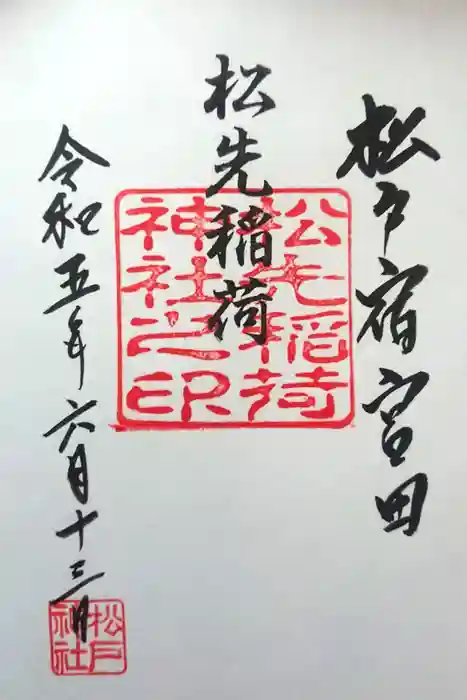 松戸宿宮田
松先稲荷
松先稲荷
神社之印
令和五年六月十三日
松戸
神社